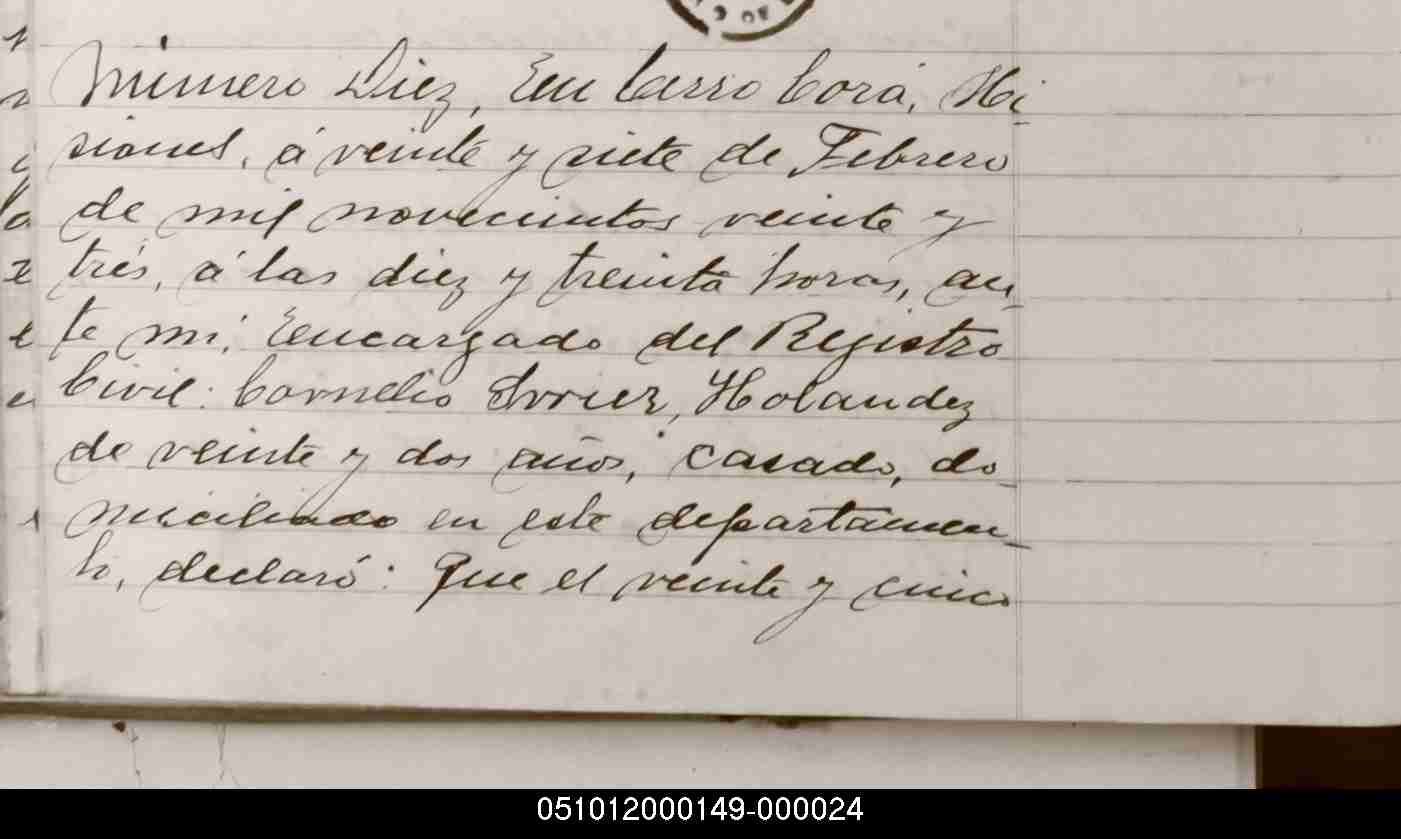 Número Diez, En Cerro Corá, Mi-
siones, á veinte y siete de Febrero
de mil novecientos veinte y
trés, á las diez y treinta horas, an-
te mi, Encargado del Registro
Civil: Cornelio Holandez
de veinte y dos años, casado, do-
miciliado en este departamen-
to, declaró: Que el veinte y cinco
051012000149-000024